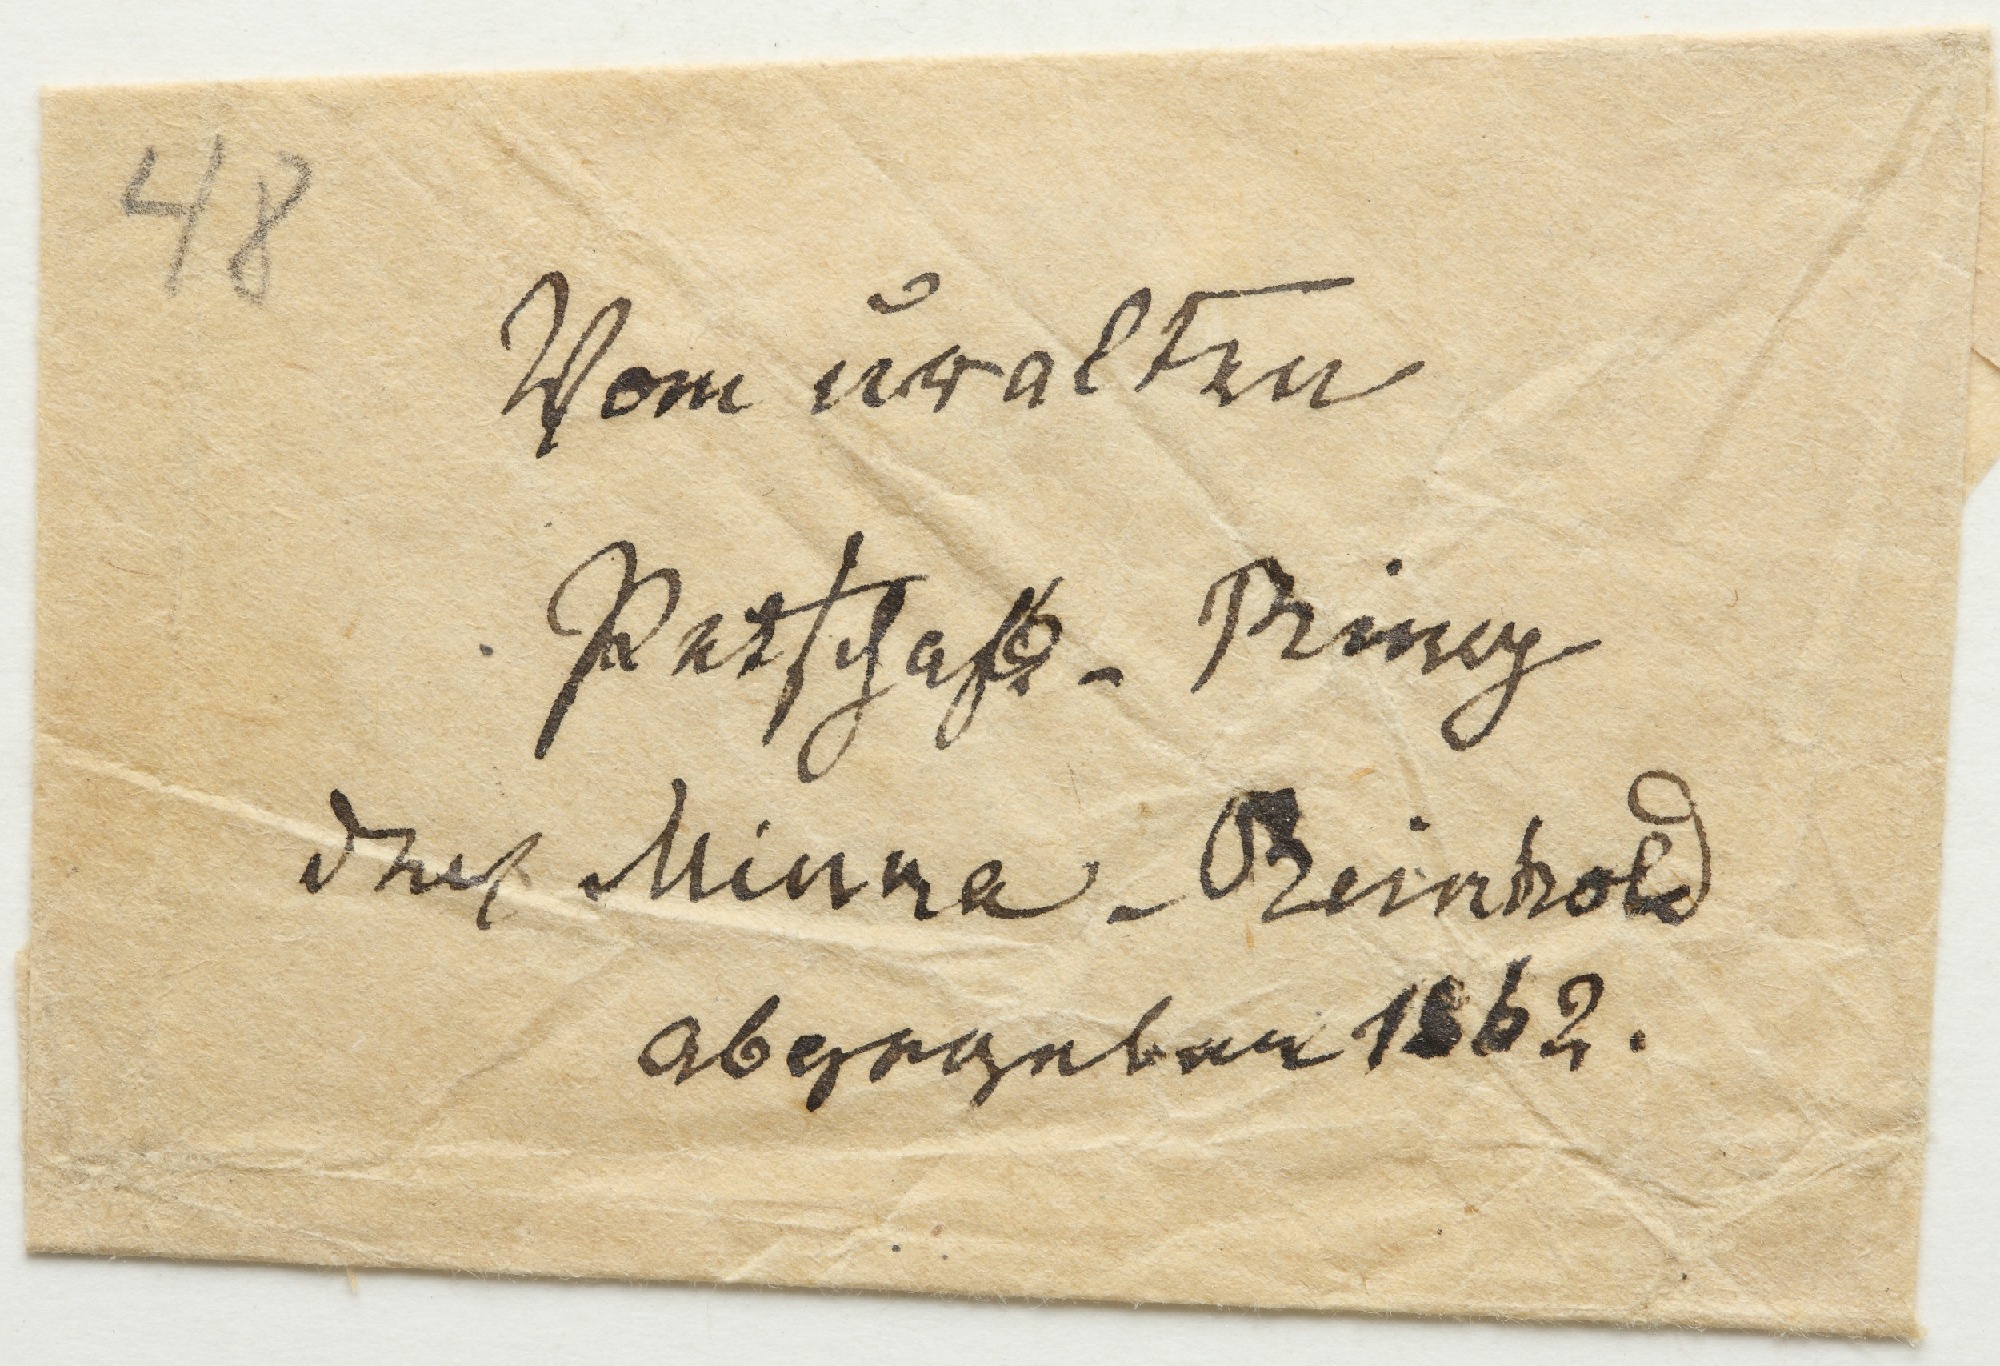 48
Vom uralten
Petschaft - Ring
durch Minna - Reinhold
abgegeben 1862.